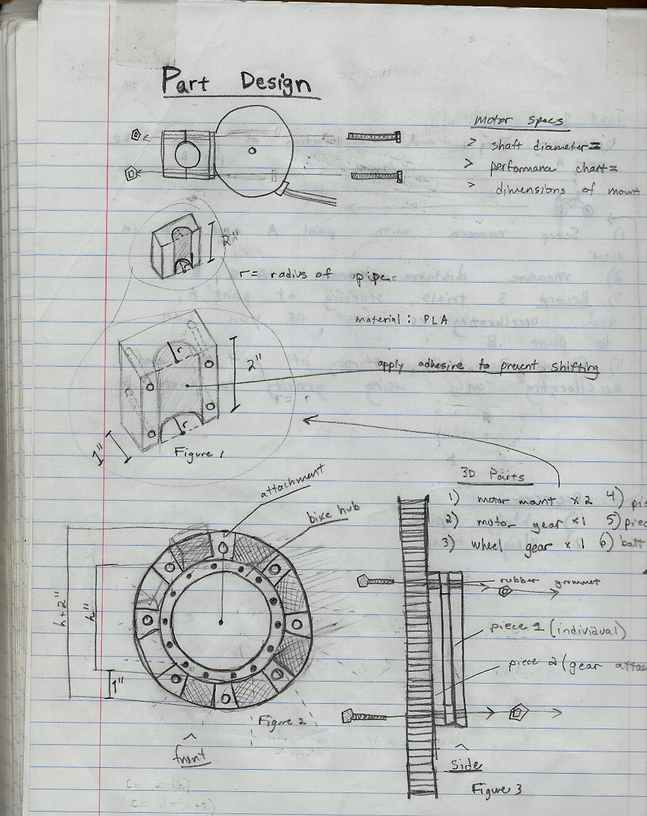 Part Design
motor specs
> shaft diameter =
> performance chart =
> dimensions of mount
2"
r = radius of pipe
material : PLA
r
2"
apply adhesive to prevent shifting
r
1"
Figure 1
3D Parts
attachment
1) motor mount x 2 4)
bike hub
2) motor gear x1 5)
3) wheel gear x 1 6)
rubber grommet
h+2"
h"
piece 1 (individual)
piece 2 (gear
1"
Figure 2
front
side
Figure 3